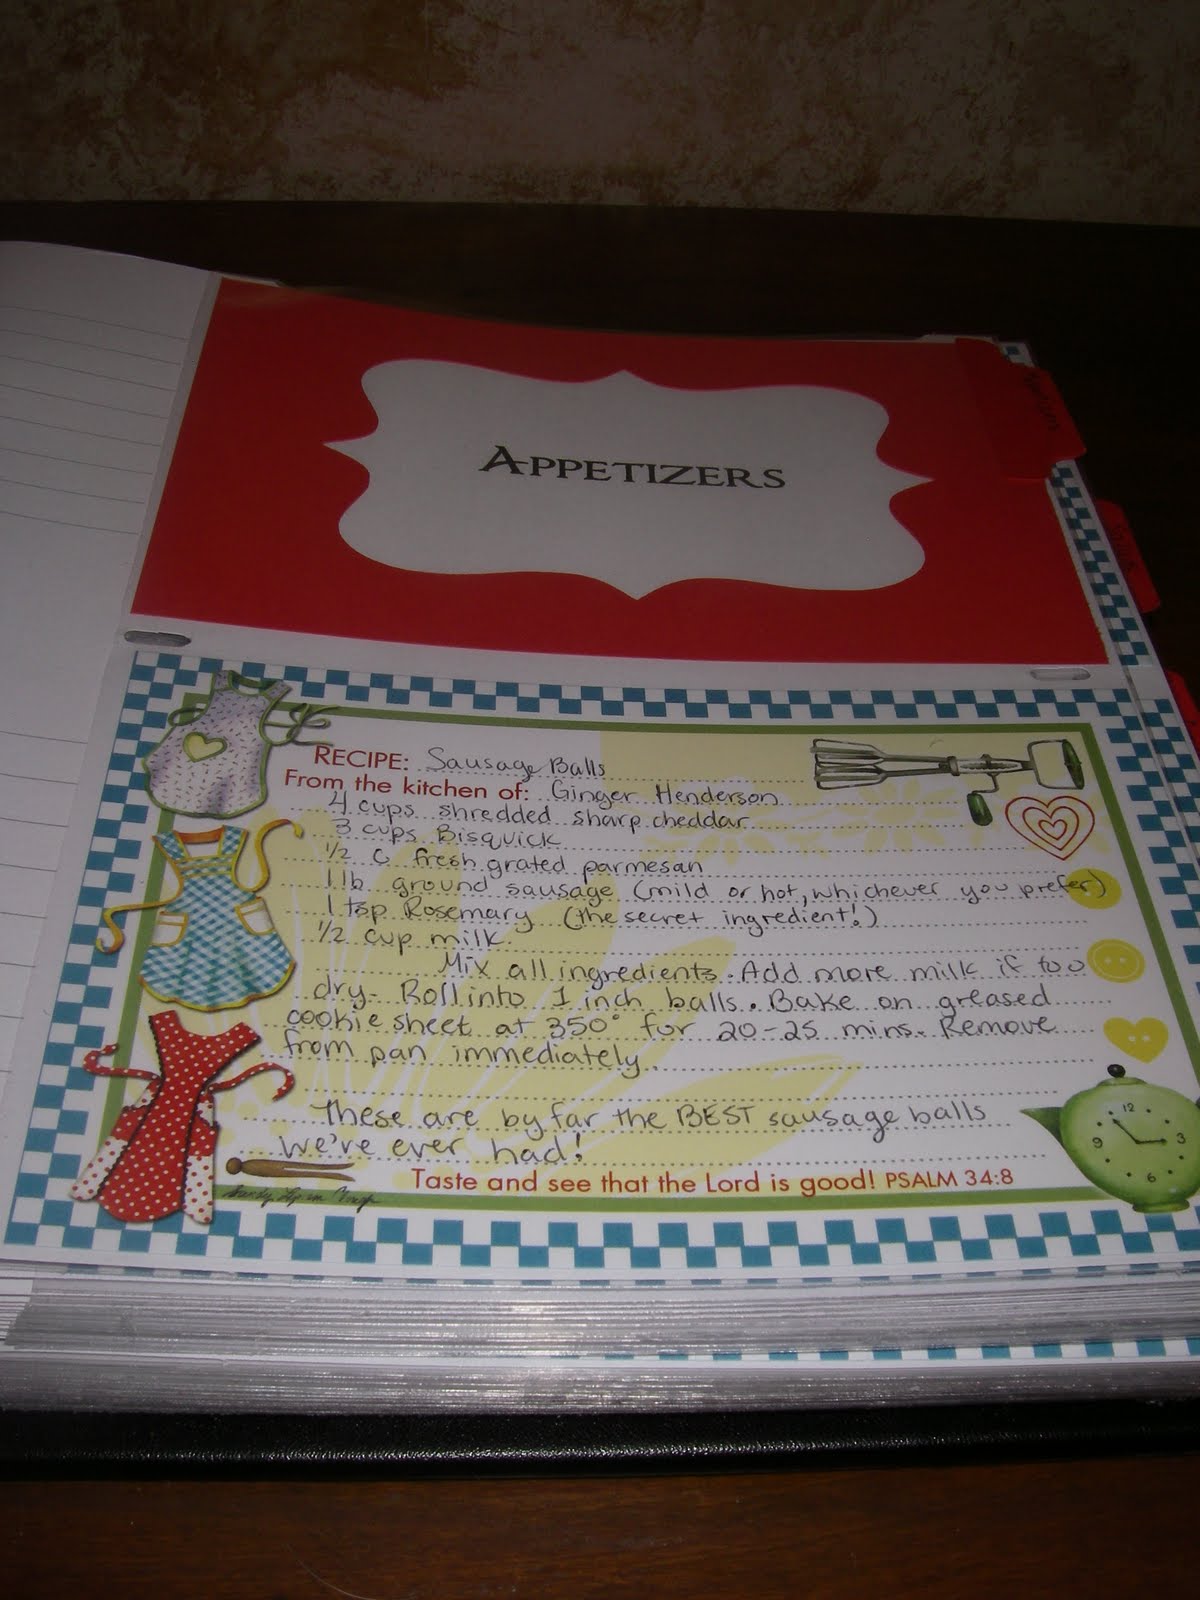 APPETIZERS
RECIPE: Sausage Balls
From the kitchen of: Ginger Henderson
4 cups shredded sharp cheddar
3 cups Bisquick
1/2 C fresh grated parmesan
1 lb ground sausage (mild or hot, whichever you prefer)
1 tsp Rosemary (the secret ingredient!)
1/2 cup milk.
Mix all ingredients. Add more milk if too
dry. Roll into 1 inch balls. Bake on greased
cookie sheet at 350° for 20-25 mins. Remove
from pan immediately.
These are by far the BEST sausage balls
we've ever had!
Taste and see that the Lord is good! PSALM 34:8
12
3
6
9